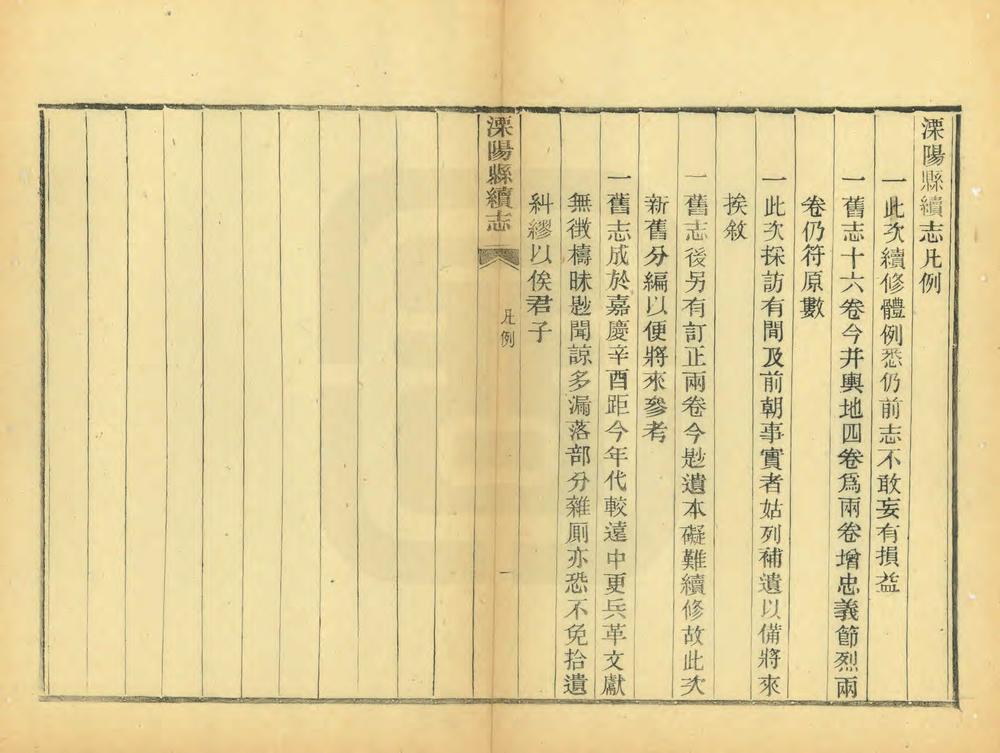 溧陽縣續志凡例
一此次續修體例悉仍前志不敢妄有損益
一舊志十六卷今并輿地四卷爲兩卷增忠義節烈兩
卷仍符原數
一此次採訪有間及前朝事實者姑列補遺以備將來
挨敘
一舊志後另有訂正兩卷今尟遺本礙難續修故此次
新舊分編以便將來參考
一舊志成於嘉慶辛酉距今年代較遠中更兵革文獻
無徵檮昧尟聞諒多漏落部分雜厠亦恐不免拾遺
糾繆以俟君子
溧陽縣續志
凡例
一